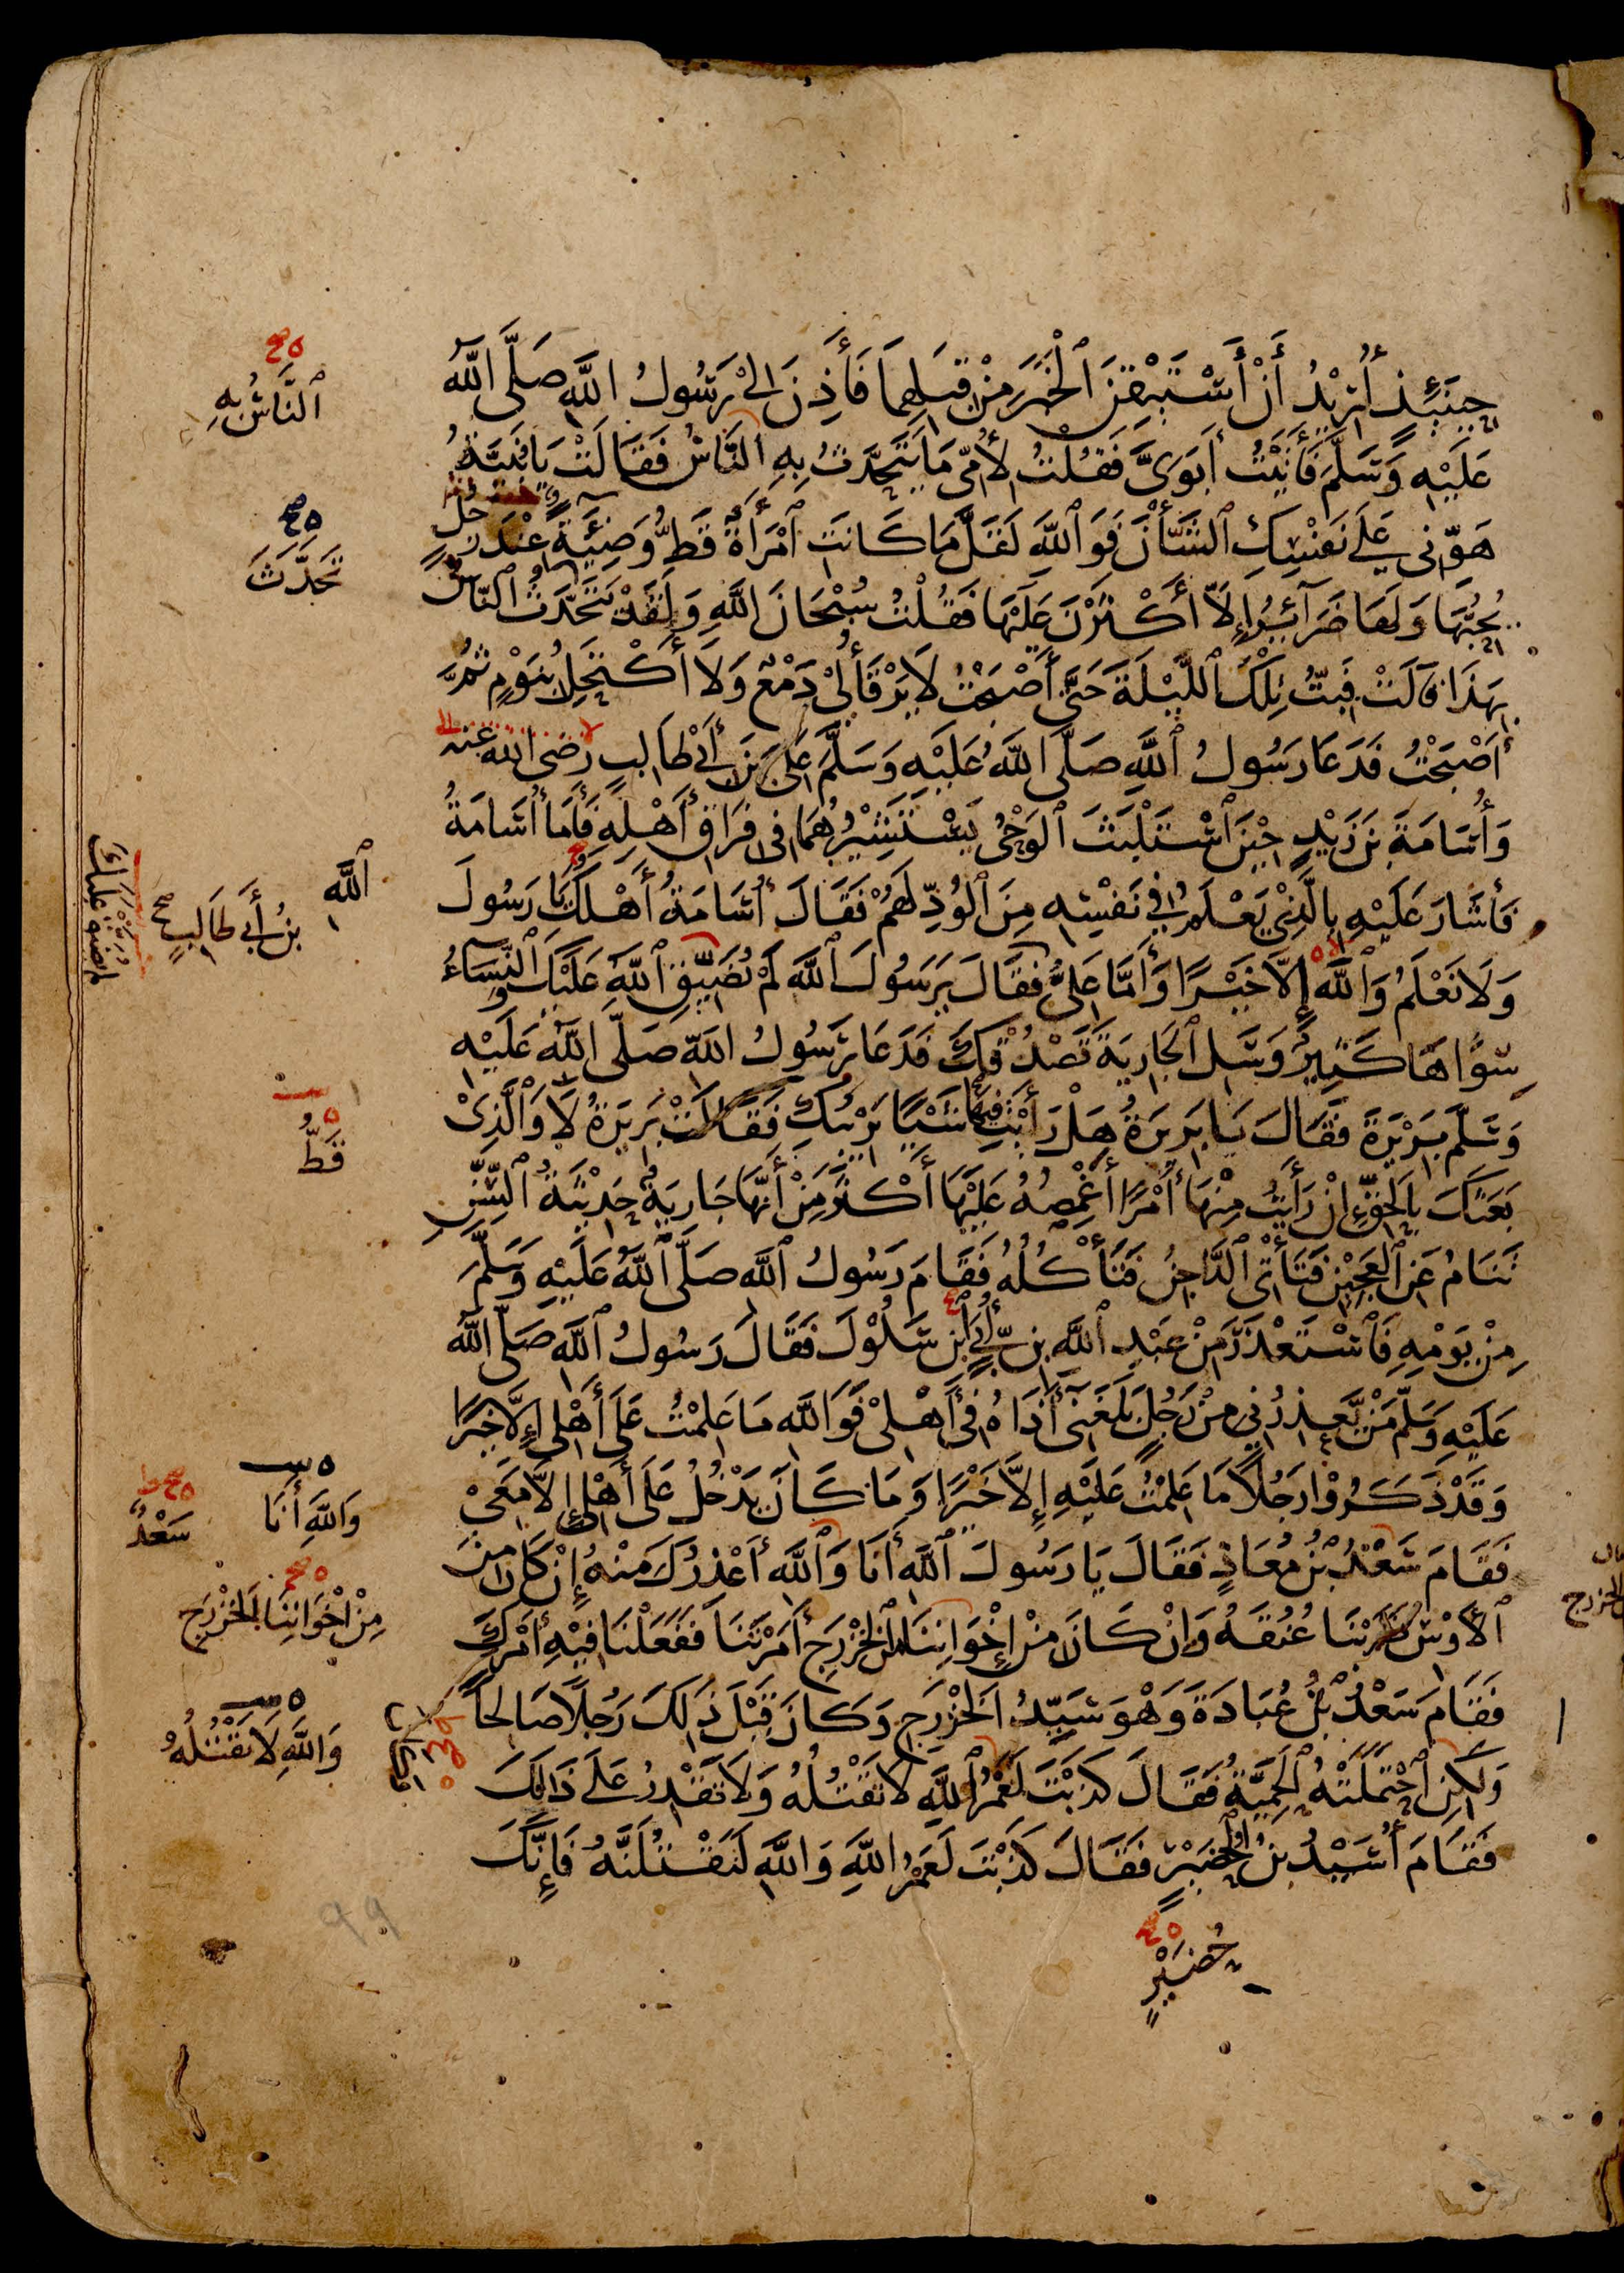 حِينَئِذٍ أُرِيْدُ أَنْ أَسْتَيْقِنَ ٱلْخَبَرَ مِنْ قِبَلِهِمَا فَأَذِنَ لِيْ رَسُولُ اللَّهِ صَلَّى اللَّهُ
عَلَيْهِ وَسَلَّمَ فَأَتَيْتُ أَبَوَيَّ فَقُلْتُ لِأُمِّي مَا يَتَحَدَّثُ بِهِ النَّاسُ فَقَالَتْ يَا بُنَيَّةُ
هَوِّنِي عَلَى نَفْسِكِ ٱلشَّأْنَ فَوَ ٱللَّهِ لَقَلَّمَا كَانَتِ ٱمْرَأَةٌ قَطُّ وَضِيْئَةٌ عِنْدَ رَجُلٍ
يُحِبُّهَا وَلَهَا ضَرَآئِرُ إِلَّا أَكْثَرْنَ عَلَيْهَا فَقُلْتُ سُبْحَانَ اللَّهِ وَلَقَدْ يَتَحَدَّثُ ٱلنَّاسُ
بِهَذَا قَالَتْ فَبِتُّ تِلْكَ ٱللَّيْلَةَ حَتَّى أَصْبَحْتُ لَا يَرْقَأُ لِيْ دَمْعٌ وَلَا أَكْتَحِلُ بِنَوْمٍ ثُمَّ
أَصْبَحْتُ فَدَعَا رَسُولُ ٱللَّهِ صَلَّى اللَّهُ عَلَيْهِ وَسَلَّمَ عَلِيَّ بْنَ أَبِيْ طَالِبٍ رضى الله عنه
وَأُسَامَةَ بْنَ زَيْدٍ حِيْنَ ٱسْتَلْبَثَ ٱلْوَحْيُ يَسْتَشِيْرُهُمَا فِي فِرَاقِ أَهْلِهِ فَأَمَّا أُسَامَةُ
فَأَشَارَ عَلَيْهِ بِالَّذِيْ يَعْلَمُ فِي نَفْسِهِ مِنَ ٱلْوُدِّ لَهُمْ فَقَالَ أُسَامَةُ أَهْلَكَ يَا رَسُولَ
وَلَا نَعْلَمُ وَٱللَّهِ إِلَّا خَيْرًا وَأَمَّا عَلِيٌّ فَقَالَ يَرَسُولَ ٱللَّهِ لَمْ يُضَيِّقِ ٱللَّهُ عَلَيْكَ وَالنِّسَاءُ
سِوَاهَا كَثِيْرٌ وَسَلِ ٱلْجَارِيَةَ تَصْدُقْكَ فَدَعَا رَسُولُ اللَّهِ صَلَّى اللَّهُ عَلَيْهِ
وَسَلَّمَ بَرِيْرَةَ فَقَالَ يَا بَرِيرَةُ هَلْ رَأَيْتِ فِيهَا شَيْئًا يَرِيْبُكِ فَقَالَتْ بَرِيرَةُ لَا وَٱلَّذِيْ
بَعَثَكَ بِالْحَقِّ إِنْ رَأَيْتُ مِنْهَا أَمْرًا أَغْمِصُهُ عَلَيْهَا أَكْثَرَ مِنْ أَنَّهَا جَارِيَةٌ حَدِيْثَةُ ٱلسِّنِّ
تَنَامُ عَنِ ٱلْعَجِيْنِ فَتَأْتِي ٱلدَّاجِنُ فَتَأْكُلُهُ فَقَامَ رَسُولُ ٱللَّهِ صَلَّى ٱللَّهُ عَلَيْهِ وَسَلَّمَ
مِنْ يَوْمِهِ فَاسْتَعْذَرَ مِنْ عَبْدِ ٱللَّهِ بْنِ أُبَيٍّ ٱبْنِ سَلُوْلَ فَقَالَ رَسُولُ ٱللَّهِ صَلَّى اللَّهُ
عَلَيْهِ وَسَلَّمَ مَنْ يَعْذِرُنِي مِنْ رَجُلٍ بَلَغَنِي أَذَاهُ فِي أَهْلِيْ فَوَاللَّهِ مَا عَلِمْتُ عَلَى أَهْلِي إِلَّا خَيْرًا
وَقَدْ ذَكَرُوْا رَجُلًا مَا عَلِمْتُ عَلَيْهِ إِلَّا خَيْرًا وَمَا كَانَ يَدْخُلُ عَلَى أَهْلِي إِلَّا مَعِيْ
فَقَامَ سَعْدُ بْنُ مُعَاذٍ فَقَالَ يَا رَسُولَ ٱللَّهِ أَنَا وَٱللَّهِ أَعْذِرُكَ مِنْهُ إِنْ كَانَ مِنَ
ٱلْأَوْسِ ضَرَبْنَا عُنُقَهُ وَإِنْ كَانَ مِنْ إِخْوَانِنَا مِنَ الْخَزْرَجِ أَمَرْتَنَا فَفَعَلْنَا فِيْهِ أَمْرَكَ
فَقَامَ سَعْدُ بْنُ عُبَادَةَ وَهْوَ سَيِّدُ الْخَزْرَجِ وَكَانَ قَبْلَ ذَلِكَ رَجُلًا صَالِحًا
وَلَكِنِ ٱحْتَمَلَتْهُ ٱلْحَمِيَّةُ فَقَالَ كَذَبْتَ لَعَمْرُ ٱللَّهِ لَا تَقْتُلُهُ وَلَا تَقْدِرُ عَلَى ذَالِكَ
فَقَامَ أُسَيْدُ بْنُ ٱلْحُضَيْرِ فَقَالَ كَذَبْتَ لَعَمْرُ اللَّهِ وَاللَّهِ لَنَقْتُلَنَّهُ فَإِنَّكَ
حُضَيْرٍ
ٱلنَّاسُ بِهِ
تَحَدَّثَ
ٱللَّهِ
بْنُ أَبِي طَالِبٍ
قَطُّ
وَاللَّهِ أَنَا
سَعْدٌ
مِنْ إِخْوَانِنَا الْخَزْرَجِ
وَاللَّهِ لَا تَقْتُلُهُ
٩٩
الخزرج